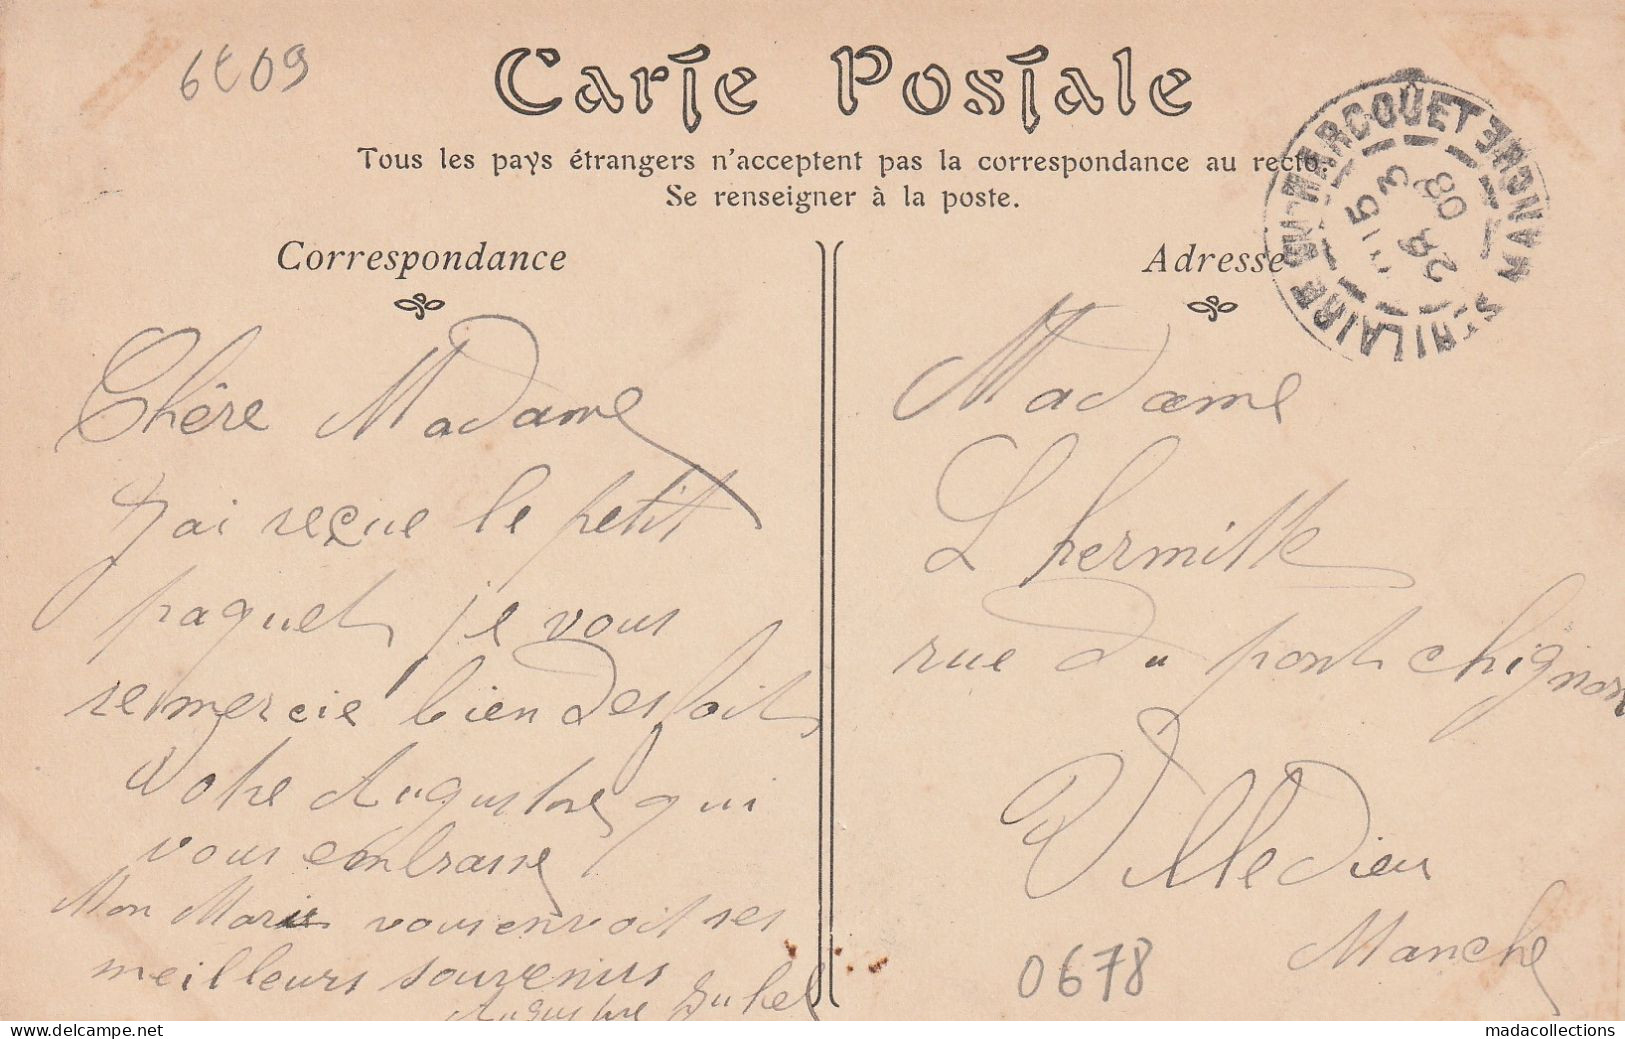 6t09
Carte Postale
Tous les pays étrangers n'acceptent pas la correspondance au recto.
Se renseigner à la poste.
ST HILAIRE DU HARCOUET MANCHE
15
26 3
08
Correspondance
Chère Madame
J'ai reçue le petit
paquet je vous
remercie bien des fois
Votre Augustine qui
vous embrasse
Mon Marie vous envoit ses
meilleurs souvenirs
Adresse
Madame
Lhermitte
rue du pont chignon
Villedieu
Manche
0678
madacollections